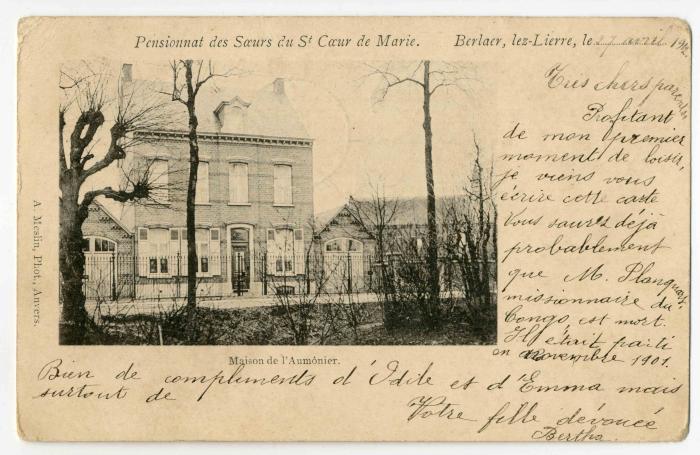 Pensionnat des Sœurs du St Cœur de Marie. Berlaer, lez-Lierre, le 27 avril 1902
Très chers parents
Profitant
de mon premier
moment de loisir,
je viens vous
écrire cette carte
Vous saurez déjà
probablement
que M. Planquart
missionnaire du
Congo est mort.
Il était parti
en novembre 1901.
A. Meslin, Phot., Anvers.
Maison de l'Aumônier.
Bien de compliments d'Odile et d'Emma mais
surtout de
Votre fille dévouée
Bertha